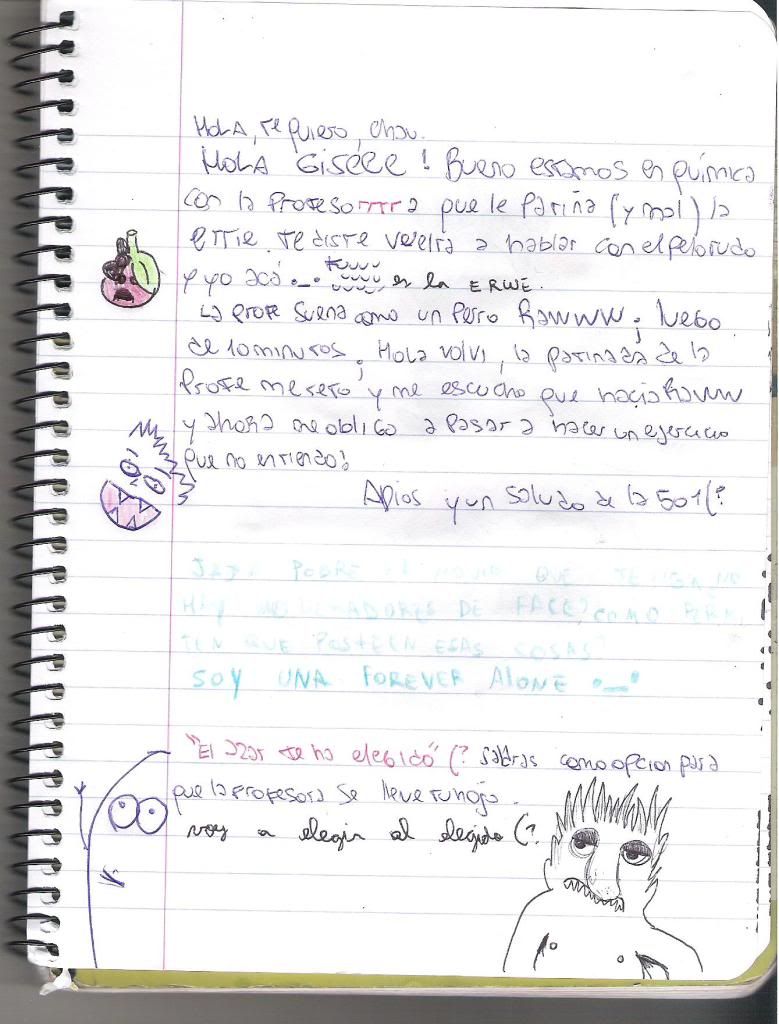 HOLA, Te quiero, chau.
HOLA GISELE! Bueno estamos en química
con la Profesorrrra que le Patina (y mal) la
erre. Te diste vuelta a hablar con el pelorudo
y yo acá ._. es la ERWE.
La profe suena como un Perro RAWWW; luego
de 10 minutos. Hola volvi, la patinada de la
Profe me reto y me escucho que hacia RAWW
y ahora me obligo a pasar a hacer un ejercicio
que no entiendo!
Adios y un saludo de la 501(?
JAJA POBRE QUE TENGA
HAY MODERADORES DE FACE? COMO PERMI
TEN QUE POSTEEN ESAS COSAS?
SOY UNA FOREVER ALONE ._.
"El azar te ha elegido" (? Saldras como opcion para
que la profesora se lleve tu hoja.
voy a elegir al elegido (?